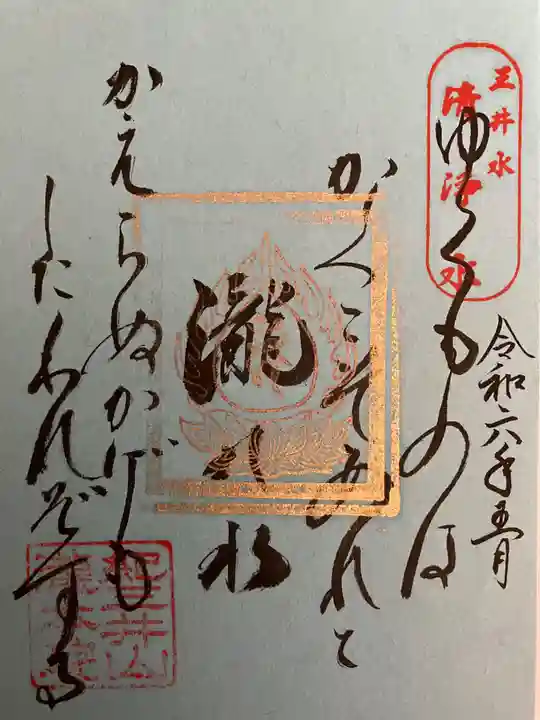 三井水
清浄水
令和六年五月
ゆくものは
かくこそみれと
瀧
かえらぬかげも
したわれぞする